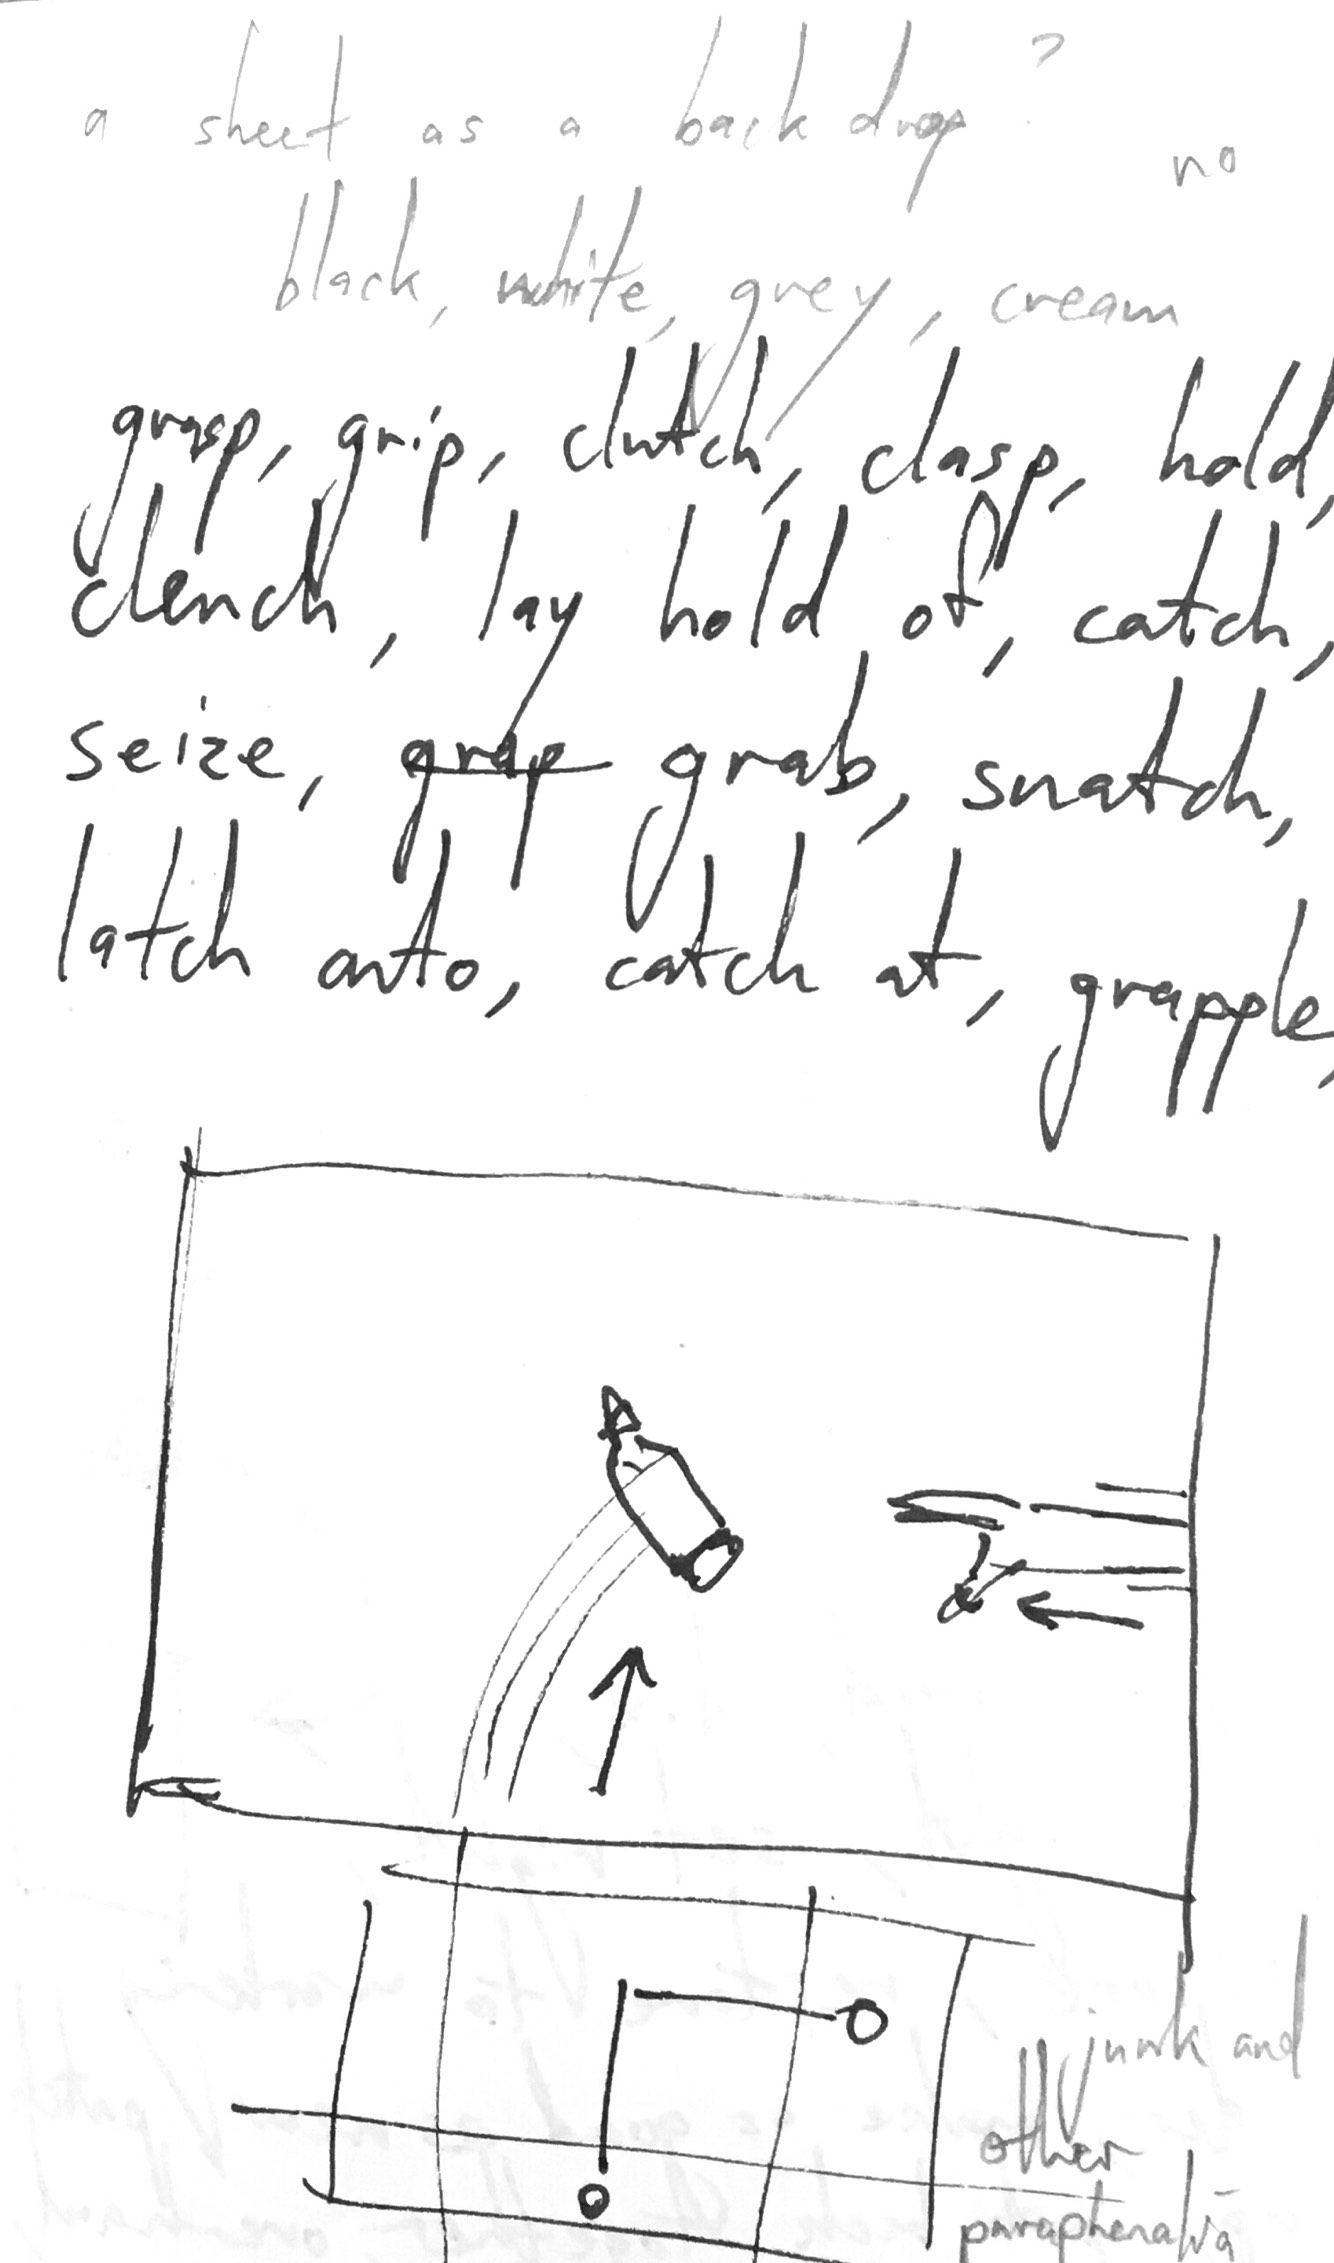 a sheet as a backdrop?
no
black, white, grey, cream
grasp, grip, clutch, clasp, hold,
clench, lay hold of, catch,
seize, grap grab, snatch,
latch onto, catch at, grapple,
junk and
other
paraphenalia